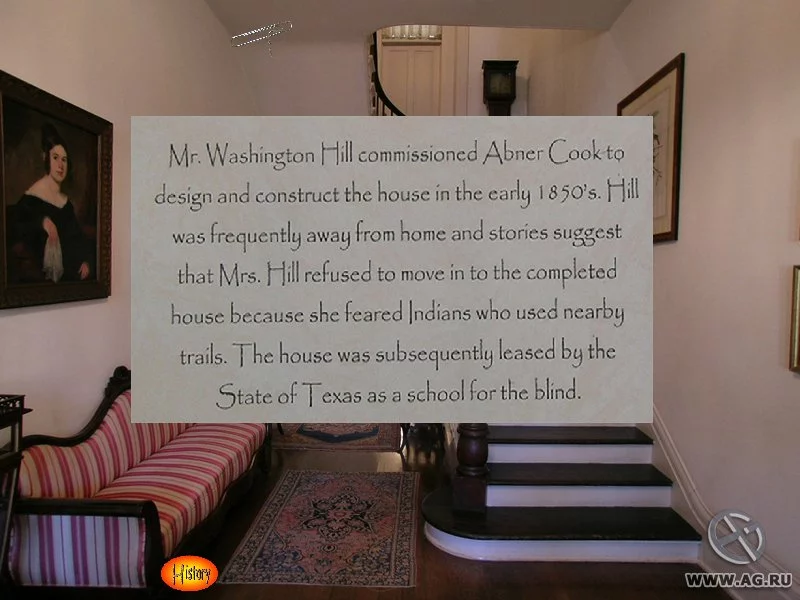 Mr. Washington Hill commissioned Abner Cook to
design and construct the house in the early 1850's. Hill
was frequently away from home and stories suggest
that Mrs. Hill refused to move in to the completed
house because she feared Indians who used nearby
trails. The house was subsequently leased by the
State of Texas as a school for the blind.
History
WWW.AG.RU